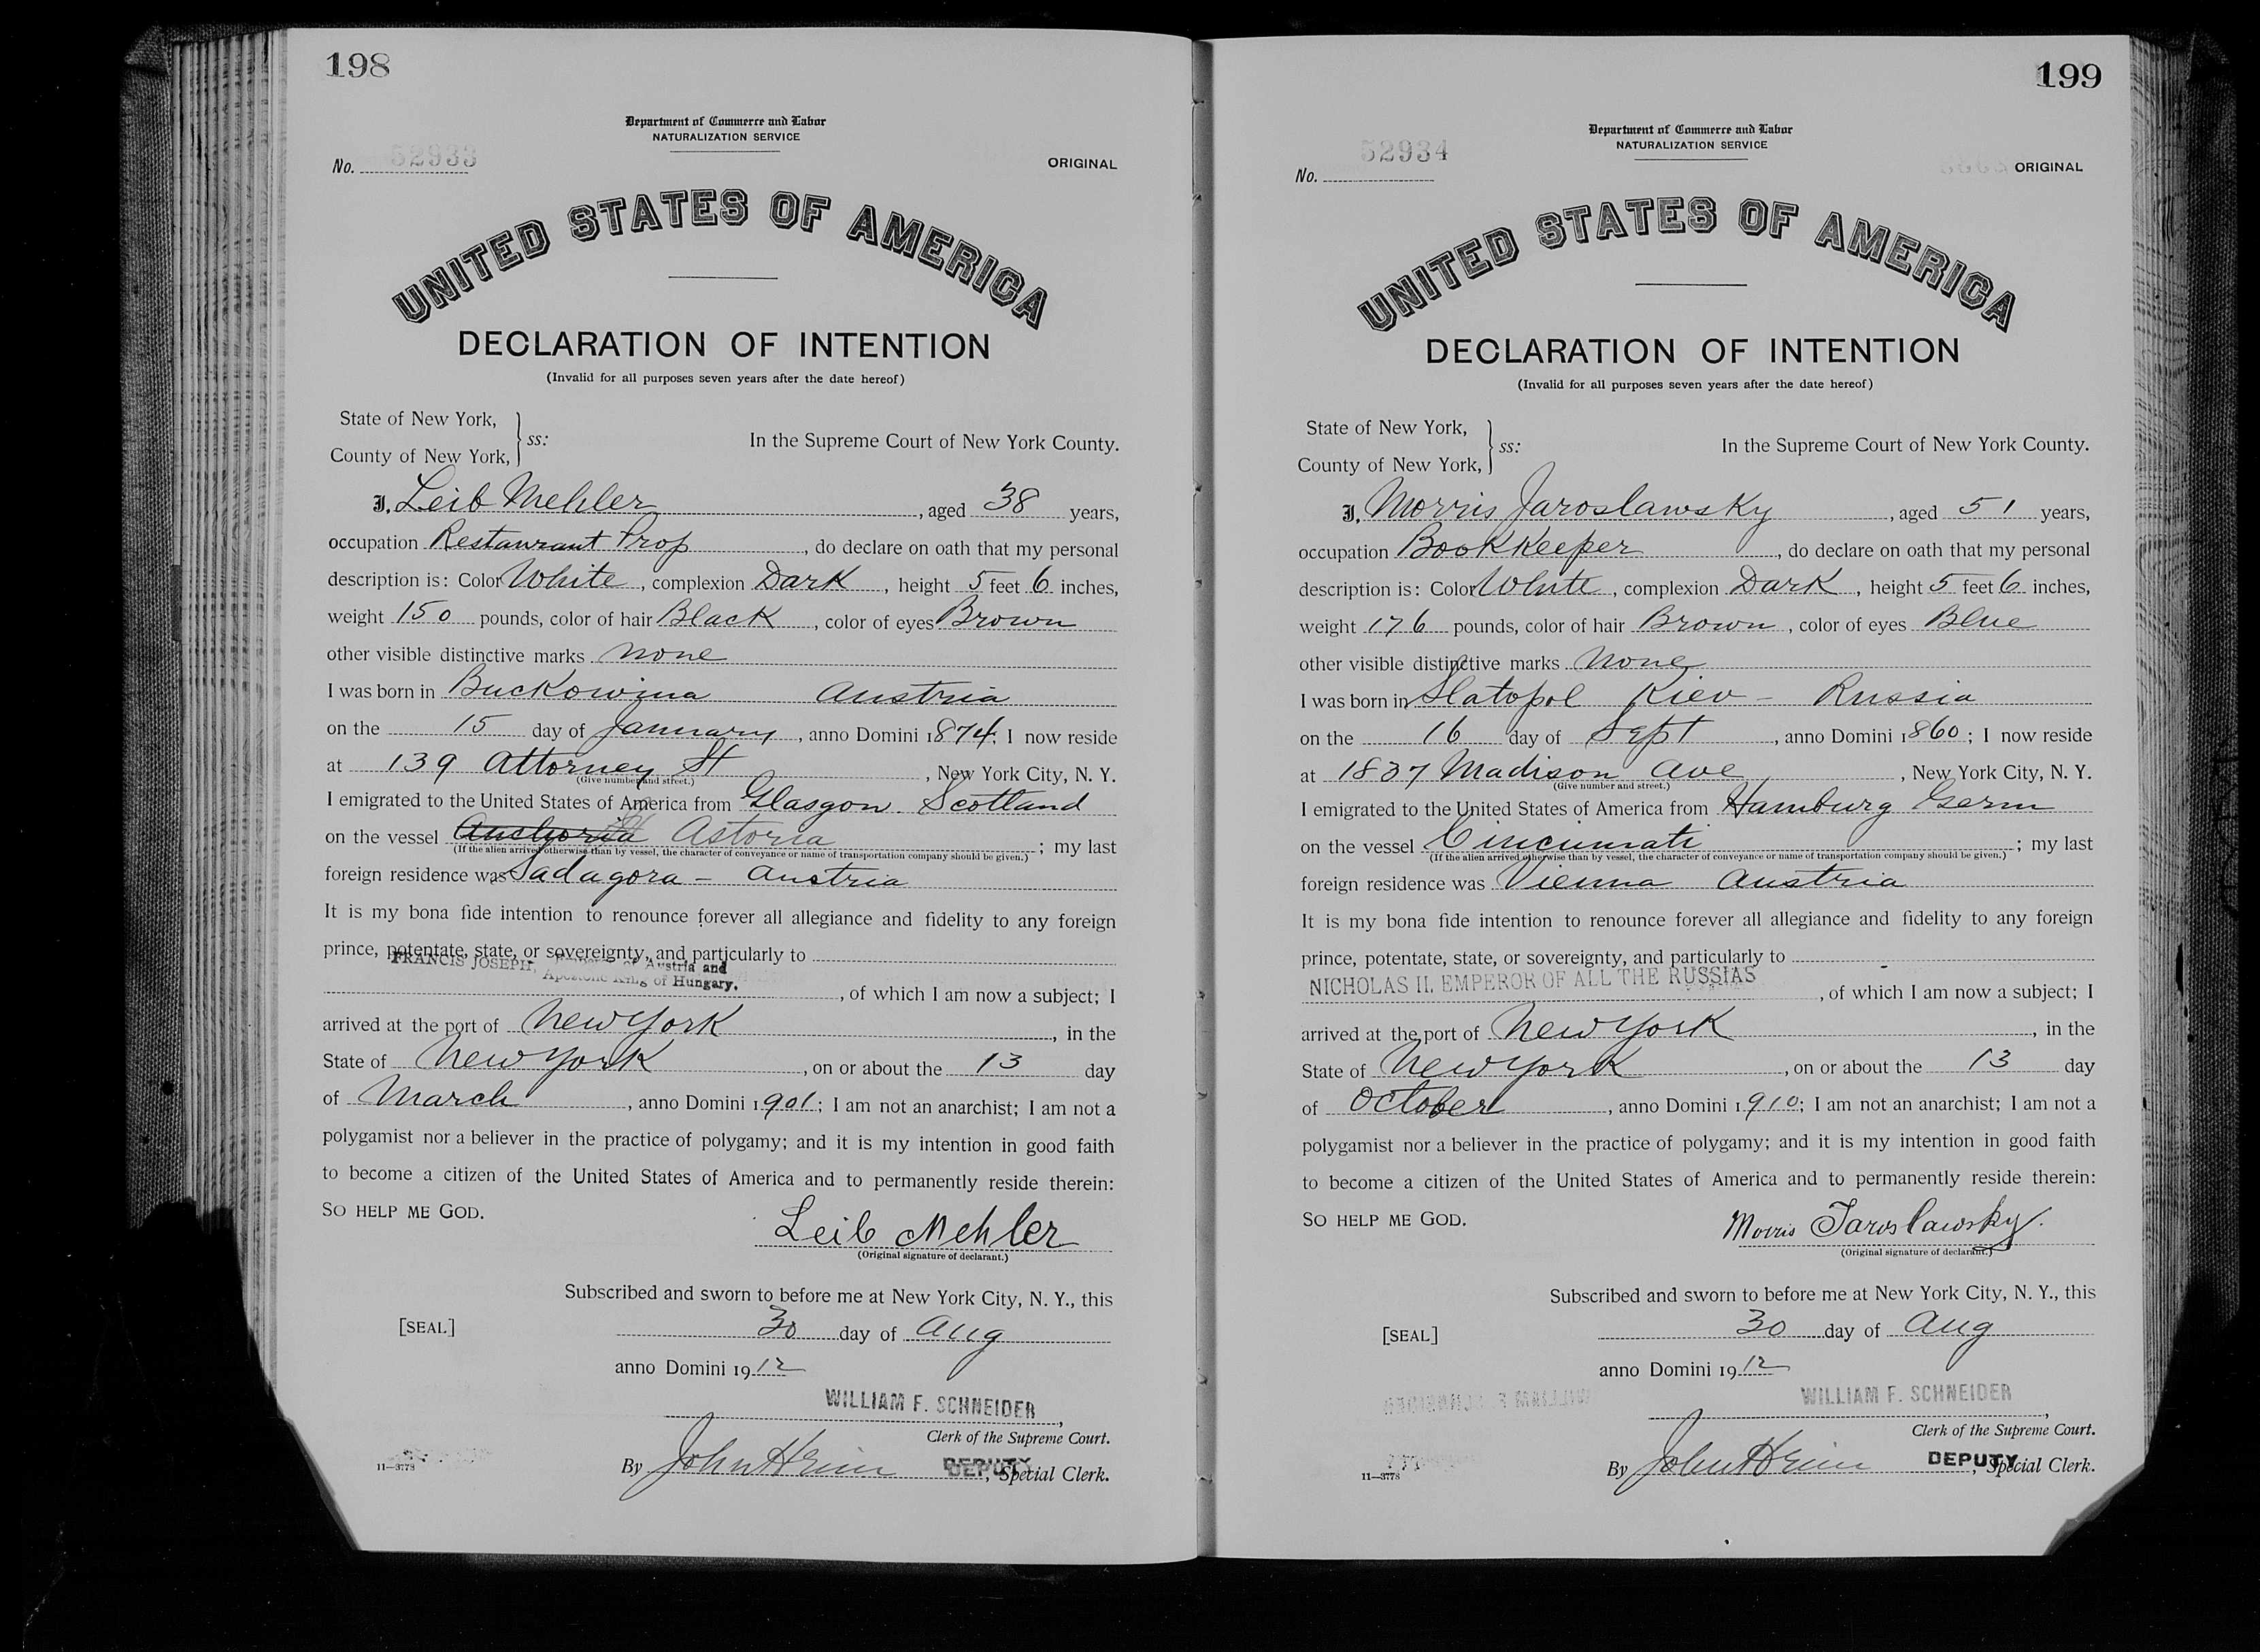 198
Department of Commerce and Labor
NATURALIZATION SERVICE
No. 52933
ORIGINAL
UNITED STATES OF AMERICA
DECLARATION OF INTENTION
(Invalid for all purposes seven years after the date hereof)
State of New York,
County of New York,
ss:
In the Supreme Court of New York County.
I, Leib Mehler, aged 38 years,
occupation Restaurant Prop, do declare on oath that my personal
description is: Color White, complexion Dark, height 5 feet 6 inches,
weight 150 pounds, color of hair Black, color of eyes Brown
other visible distinctive marks none
I was born in Buckowina Austria
on the 15 day of January, anno Domini 1874; I now reside
at 139 Attorney St, New York City, N. Y.
(Give number and street.)
I emigrated to the United States of America from Glasgow Scotland
on the vessel Anchoria Astoria; my last
(If the alien arrived otherwise than by vessel, the character of conveyance or name of transportation company should be given.)
foreign residence was Sadagora - Austria
It is my bona fide intention to renounce forever all allegiance and fidelity to any foreign
prince, potentate, state, or sovereignty, and particularly to
FRANCIS JOSEPH, Emperor of Austria and
Apostolic King of Hungary.
, of which I am now a subject; I
arrived at the port of New York, in the
State of New York, on or about the 13 day
of March, anno Domini 1901; I am not an anarchist; I am not a
polygamist nor a believer in the practice of polygamy; and it is my intention in good faith
to become a citizen of the United States of America and to permanently reside therein:
SO HELP ME GOD.
Leib Mehler
(Original signature of declarant.)
Subscribed and sworn to before me at New York City, N. Y., this
[SEAL]
30 day of Aug
anno Domini 1912
WILLIAM F. SCHNEIDER
Clerk of the Supreme Court.
By John Heim DEPUTY, Special Clerk.
11—3778
199
Department of Commerce and Labor
NATURALIZATION SERVICE
No. 52934
ORIGINAL
UNITED STATES OF AMERICA
DECLARATION OF INTENTION
(Invalid for all purposes seven years after the date hereof)
State of New York,
County of New York,
ss:
In the Supreme Court of New York County.
I, Morris Jaroslawsky, aged 51 years,
occupation Bookkeeper, do declare on oath that my personal
description is: Color White, complexion Dark, height 5 feet 6 inches,
weight 176 pounds, color of hair Brown, color of eyes Blue
other visible distinctive marks None
I was born in Slatopol Kiev - Russia
on the 16 day of Sept, anno Domini 1860; I now reside
at 1837 Madison Ave, New York City, N. Y.
(Give number and street.)
I emigrated to the United States of America from Hamburg Germ
on the vessel Cincinnati; my last
(If the alien arrived otherwise than by vessel, the character of conveyance or name of transportation company should be given.)
foreign residence was Vienna Austria
It is my bona fide intention to renounce forever all allegiance and fidelity to any foreign
prince, potentate, state, or sovereignty, and particularly to
NICHOLAS II. EMPEROR OF ALL THE RUSSIAS, of which I am now a subject; I
arrived at the port of New York, in the
State of New York, on or about the 13 day
of October, anno Domini 1910; I am not an anarchist; I am not a
polygamist nor a believer in the practice of polygamy; and it is my intention in good faith
to become a citizen of the United States of America and to permanently reside therein:
SO HELP ME GOD.
Morris Jaroslawsky.
(Original signature of declarant.)
Subscribed and sworn to before me at New York City, N. Y., this
[SEAL]
30 day of Aug
anno Domini 1912
WILLIAM F. SCHNEIDER
Clerk of the Supreme Court.
By John Heim DEPUTY, Special Clerk.
11—3778